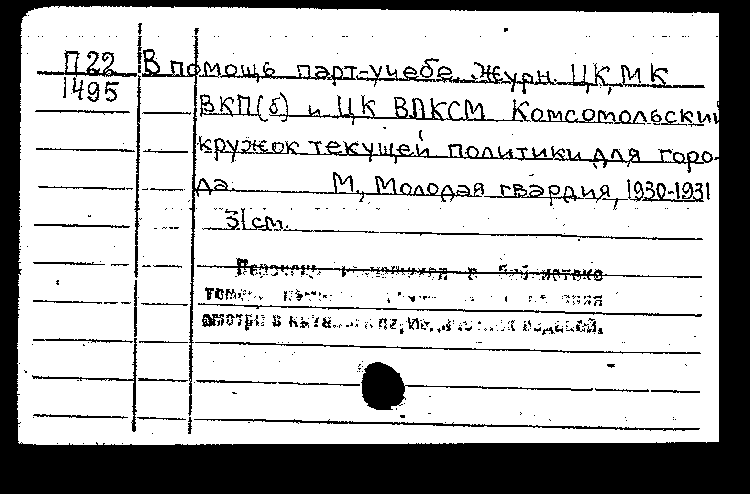 П22 В помощь парт-учебе. Журн. ЦК, МК
1495 ВКП(б) и ЦК ВЛКСМ Комсомольский
кружок текущей политики для горо-
да. М., Молодая гвардия, 1930-1931
31 см.
Перечень в библиотеке
смотри в изданий.